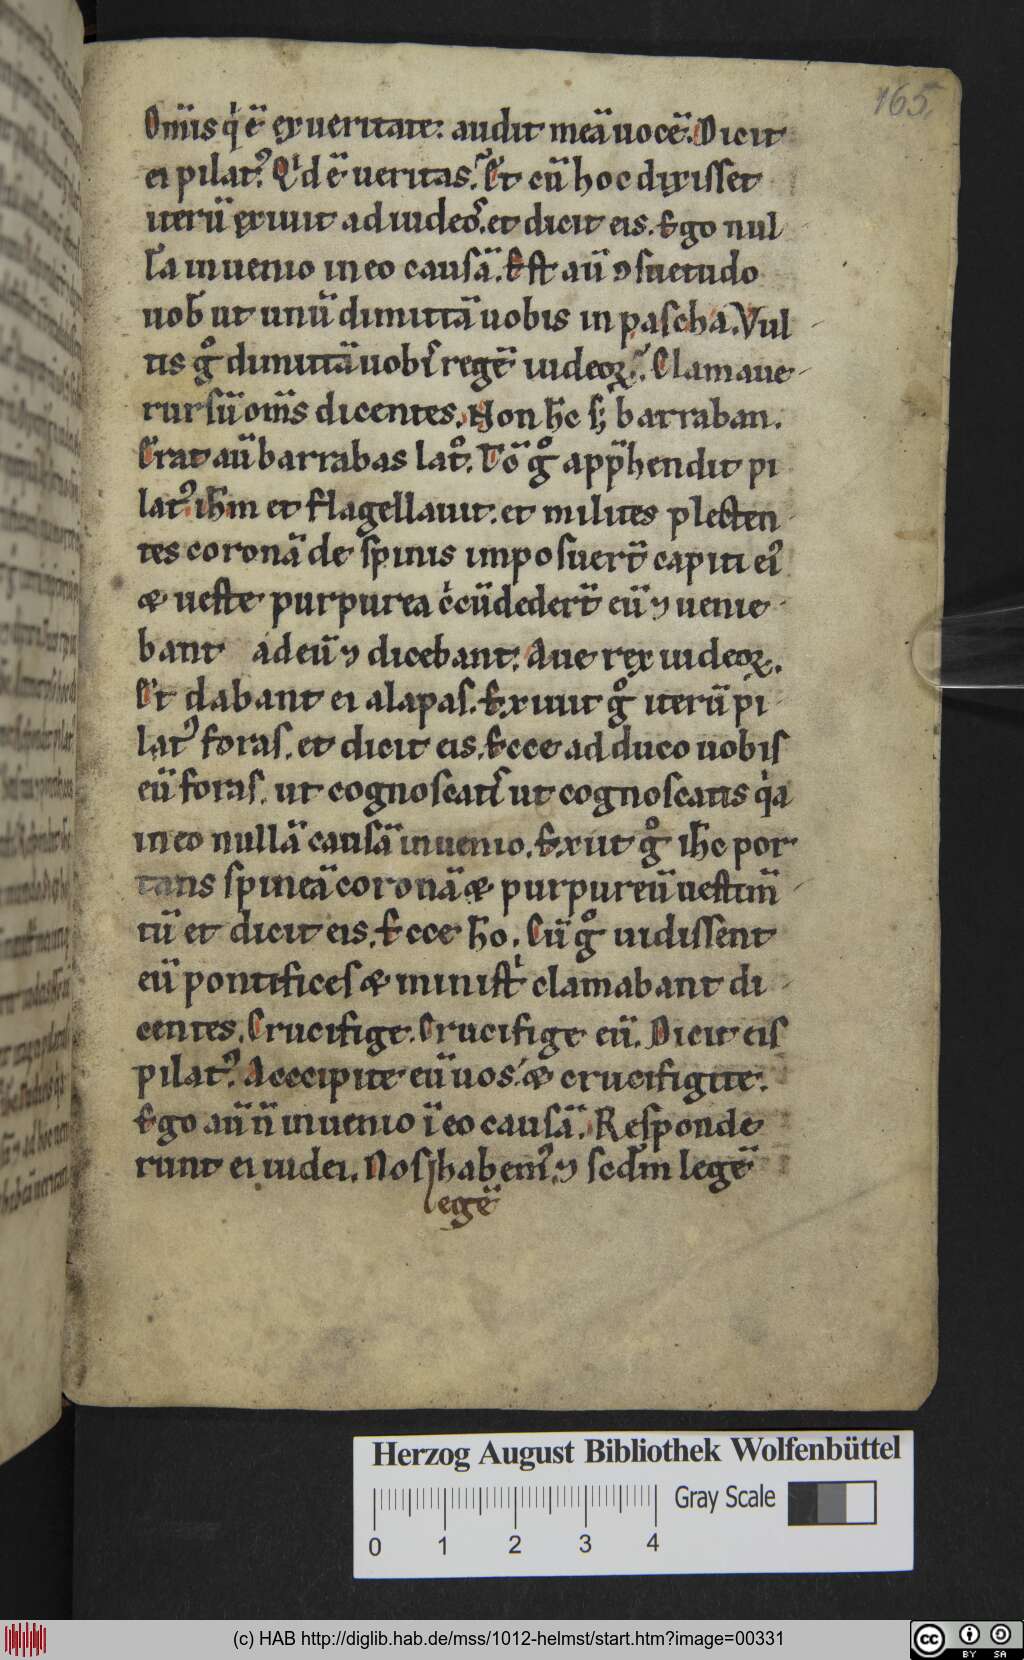 165.
Om̄is qͥ ē ex ueritate: audit meā uocē. Dicit
ei pilatꝰ. Qͥd ē ueritas. Et cū hoc dixisset
iterū exiuit ad iudeos. et dicit eis. Ego nul
lā inuenio in eo causā. Est aū ꝯsuetudo
uob̄ ut unū dimittā uobis in pascha. Vul
tis gͦ dimittā uobis regē iudeoꝝ. Clamaue
rursū om̄s dicentes. Non h̄c sꝫ barraban.
Erat aū barrabas latͦ. Tō gͦ app̄hendit pi
latꝰ ih̄m et flagellauit. et milites plecten
tes coronā de spinis imposuert̄ capiti eiꝰ
æ ueste purpurea cͥcūdedert̄ eū ⁊ uenie
bant ad eū ⁊ dicebant. Aue rex iudeoꝝ.
Et dabant ei alapas. Exiuit gͦ iterū pi
latꝰ foras. et dicit eis. Ecce adduco uobis
eū foras. ut cognoscatis ut cognoscatis qͥa
in eo nullā causā inuenio. Exiit gͦ ih̄c por
tans spineā coronā æ purpureū uestim̄
tū et dicit eis. Ecce h̄o. Cū gͦ uidissent
eū pontifices æ ministͥ clamabant di
centes. Crucifige. Crucifige eū. Dicit eis
pilatꝰ. Accipite eū uos. æ crucifigite.
Ego aū n̄ inuenio ī eo causā. Responde
runt ei iudei. Nos habemꝰ. ⁊ scd̄m legē
legē
Herzog August Bibliothek Wolfenbüttel
Gray Scale
0 1 2 3 4
(c) HAB http://diglib.hab.de/mss/1012-helmst/start.htm?image=00331
cc BY SA